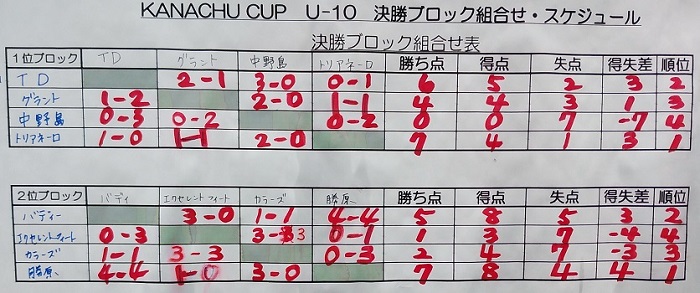 KANACHU CUP U-10 決勝ブロック組合せ・スケジュール
決勝ブロック組合せ表
1位ブロック TD グラント 中野島 トリアネーロ 勝ち点 得点 失点 得失差 順位
TD 2-1 3-0 0-1 6 5 2 3 2
グラント 1-2 2-0 1-1 4 4 3 1 3
中野島 0-3 0-2 0-2 0 0 7 -7 4
トリアネーロ 1-0 1-1 2-0 7 4 1 3 1
2位ブロック バディ エクセレントフィート カラーズ 勝原 勝ち点 得点 失点 得失差 順位
バディー 3-0 1-1 4-4 5 8 5 3 2
エクセレントフィート 0-3 3-3 0-1 1 3 7 -4 4
カラーズ 1-1 3-3 0-3 2 4 7 -3 3
勝原 4-4 1-0 3-0 7 8 4 4 1